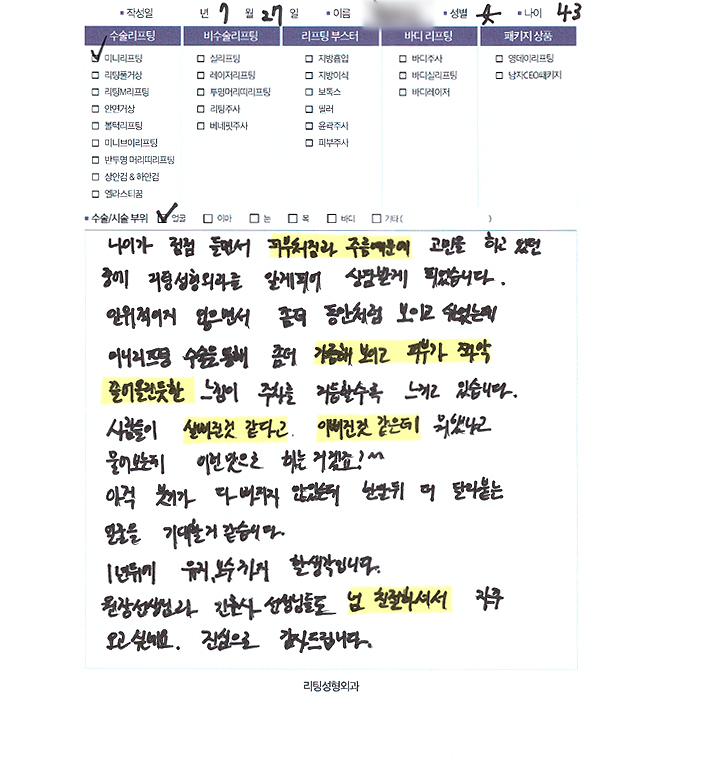 작성일 년 7 월 27 일 이름 성별 나이 43
수술리프팅 비수술리프팅 리프팅 부스터 바디 리프팅 패키지 상품
미니리프팅 실리프팅 지방흡입 바디주사 영데이리프팅
리팅풀거상 레이저리프팅 지방이식 바디실리프팅 남자CEO패키지
리팅M리프팅 투명머리띠리프팅 보톡스 바디레이저
안면거상 리팅주사 필러
볼턱리프팅 베네핏주사 윤곽주사
미니브이리프팅 피부주사
반투명 머리띠리프팅
상안검 & 하안검
엘라스티꿈
수술/시술 부위 얼굴 이마 눈 목 바디 기타( )
나이가 점점 들면서 피부처짐과 주름때문에 고민을 하고 있던
중에 리팅성형외과를 알게되어 상담받게 되었습니다.
인위적이지 않으면서 좀더 동안처럼 보이고 싶었는데
미니리프팅 수술을 통해 좀더 갸름해 보이고 피부가 쫘악
끌어올린듯한 느낌이 주차를 거듭할수록 느끼고 있습니다.
사람들이 살빠진것 같다고. 이뻐진것 같은데 뭐했냐고
물어보는데 이런 맛으로 하는 거겠죠?^^
아직 붓기가 다 빠지지 않았는데 한달뒤 더 달라붙는
얼굴을 기대할거 같습니다.
1년뒤에 유지,보수까지 할생각입니다.
원장선생님과 간호사 선생님들도 넘 친절하셔서 자주
오고 싶네요. 진심으로 감사드립니다.
리팅성형외과